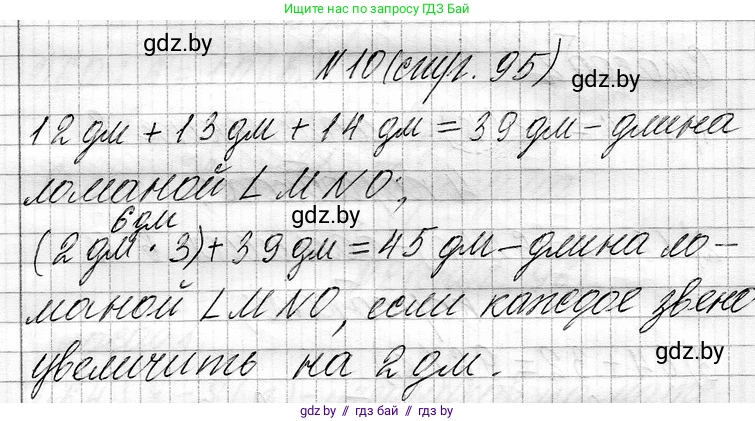 Ищите нас по запросу ГДЗ Бай
gdz.by
N 10 (стр. 95)
gdz.by
12 дм + 13 дм + 14 дм = 39 дм - длина
ломаной LMNO;
6 дм
gdz.by
(2 дм · 3) + 39 дм = 45 дм - длина ло-
маной LMNO, если каждое звено
gdz.by
увеличить на 2 дм.
gdz.by // гдз бай // гдз by